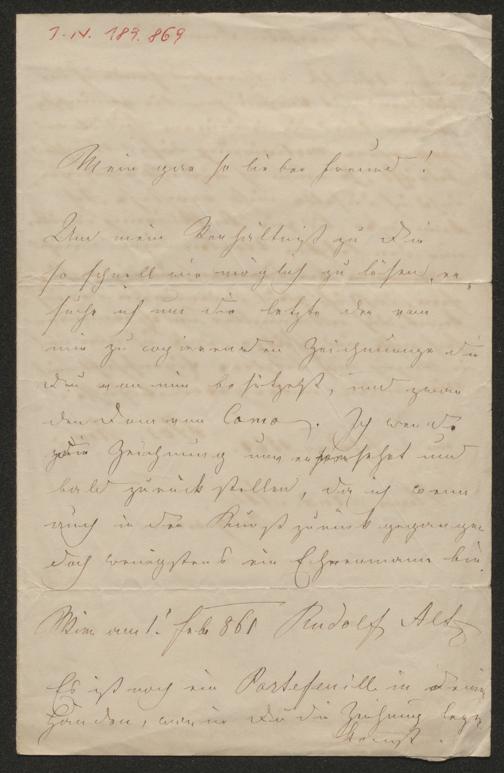 I. N. 189.869
Mein gar so lieber Freund!
Um mein Verhältniß zu Dir
so schnell wie möglich zu lösen, er„
suche ich um die letzte der von
mir zu copierenden Zeichnungen die
Du von mir besitzest, und zwar
den Dom von Como. Ich werde
die Zeichnung unversehrt und
bald zurück stellen, da ich wenn
auch in der Kunst zurück gegangen
doch wenigstens ein Ehrenmann bin.
Wien am 1. Feb 861 Rudolf Alt
Es ist noch ein Portefeuille in Deinen
Händen, worin Du die Zeichnung legen
kannst.